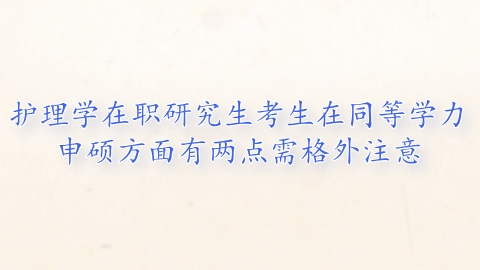 护理学在职研究生考生在同等学力
申硕方面有两点需格外注意